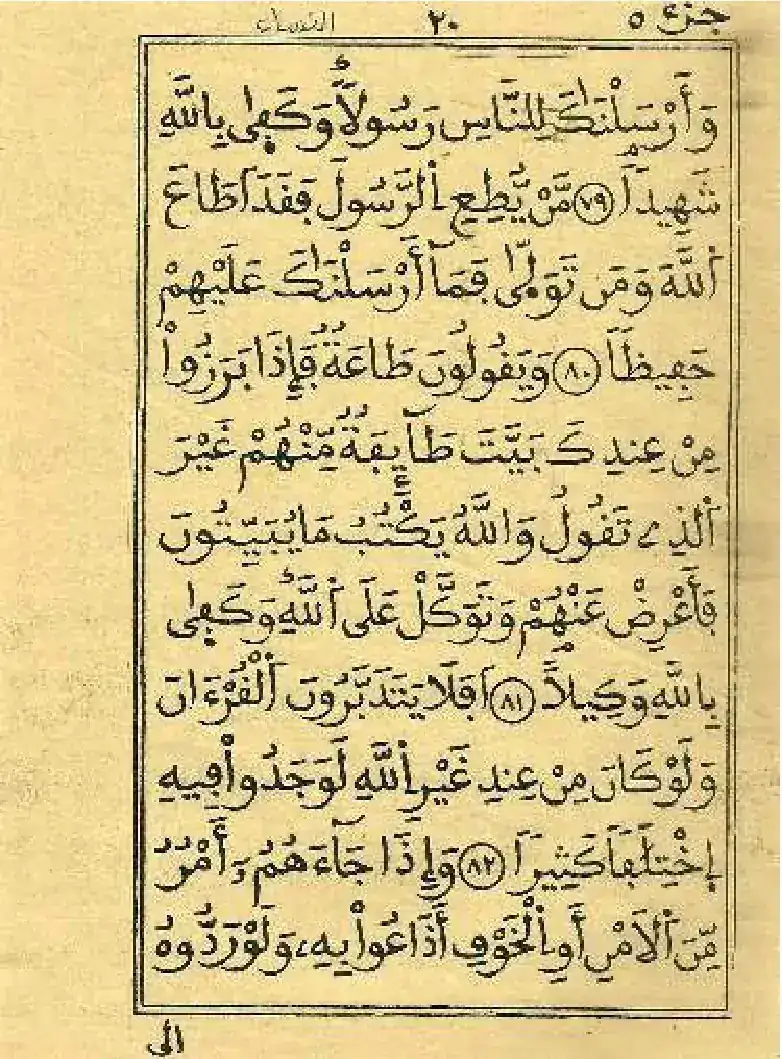 جزء ٥ ٢٠
وَأَرْسَلْنَٰكَ لِلنَّاسِ رَسُولاً وَكَفِىٰ بِاللَّهِ
شَهِيداً ٧٩ مَّنْ يُّطِعِ اِ۬لرَّسُولَ فَقَدَ اَطَاعَ
اَ۬للَّهَ وَمَن تَوَلّىٰ فَمَآ أَرْسَلْنَٰكَ عَلَيْهِمْ
حَفِيظاً ٨٠ وَيَقُولُونَ طَاعَةٌ فَإِذَا بَرَزُواْ
مِنْ عِندِكَ بَيَّتَ طَآئِفَةٌ مِّنْهُمْ غَيْرَ
اَ۬لذِے تَقُولُ وَاللَّهُ يَكْتُبُ مَا يُبَيِّتُونَ
فَأَعْرِضْ عَنْهُمْ وَتَوَكَّلْ عَلَى اَ۬للَّهِ وَكَفِىٰ
بِاللَّهِ وَكِيلاً ٨١ اَفَلَا يَتَدَبَّرُونَ اَ۬لْقُرْءَانَ
وَلَوْ كَانَ مِنْ عِندِ غَيْرِ اِ۬للَّهِ لَوَجَدُواْ فِيهِ
اِ۪خْتِلَٰفاً كَثِيراً ٨٢ وَإِذَا جَآءَهُمُۥٓ أَمْرٌ
مِّنَ اَ۬لَامْنِ أَوِ اِ۬لْخَوْفِ أَذَاعُواْ بِهِۦ وَلَوْ رَدُّوهُ
الى